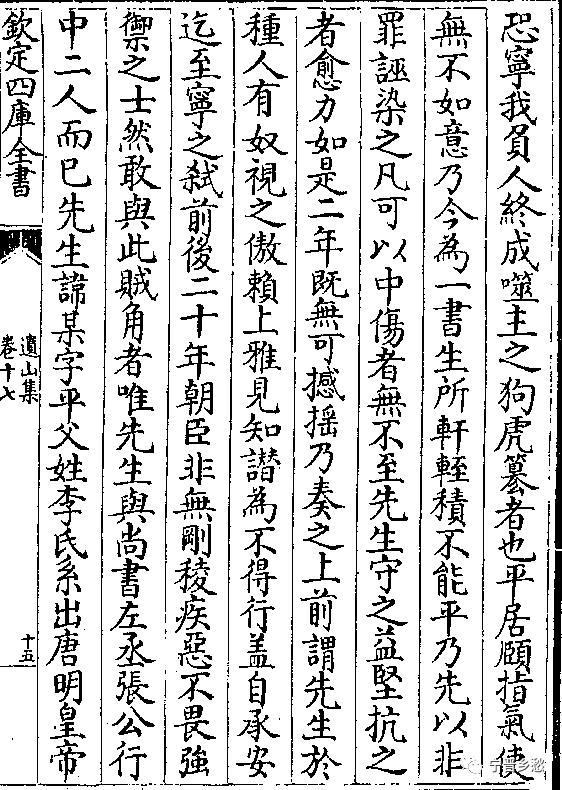 恐寧我負人終成噬主之狗虎簒者也平居頤指氣使
無不如意乃今為一書生所軒輊積不能平乃先以非
罪誣染之凡可以中傷者無不至先生守之益堅抗之
者愈力如是二年既無可撼揺乃奏之上前謂先生於
種人有奴視之傲賴上雅見知譖為不得行盖自承安
迄至寧之弑前後二十年朝臣非無剛稜疾惡不畏強
禦之士然敢與此賊角者唯先生與尚書左丞張公行
中二人而已先生諱某字平父姓李氏系出唐明皇帝
欽定四庫全書
遺山集
卷十七
十五
宁晋乡愁